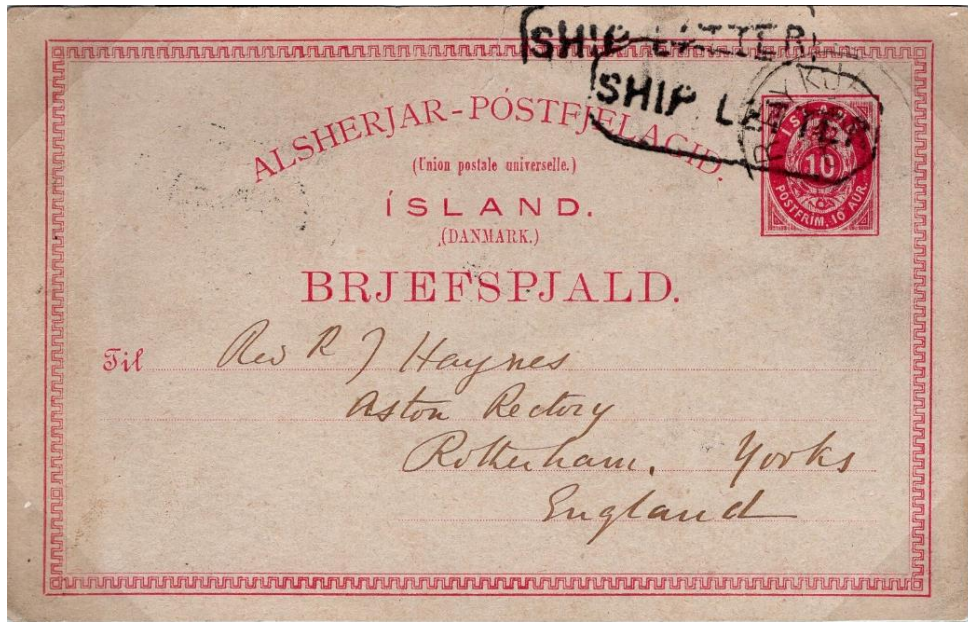 SHIP LETTER
SHIP LETTER
REYKJ
ALSHERJAR-PÓSTFJELAGID.
(Union postale universelle.)
ÍSLAND.
(DANMARK.)
BRJEFSPJALD.
ÍSLAND
10
POSTFRIM. 10 AUR.
Til Rev R J Haynes
Aston Rectory
Rotherham. Yorks
England